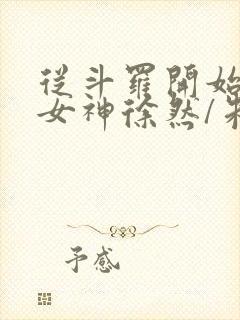 從斗羅開始
女神徐然/朱
予感